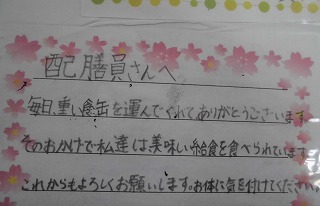 配膳員さんへ
毎日、重い食缶を運んでくれてありがとうございます。
そのおかげで私達は美味しい給食を食べられています。
これからもよろしくお願いします。お体に気を付けてください。